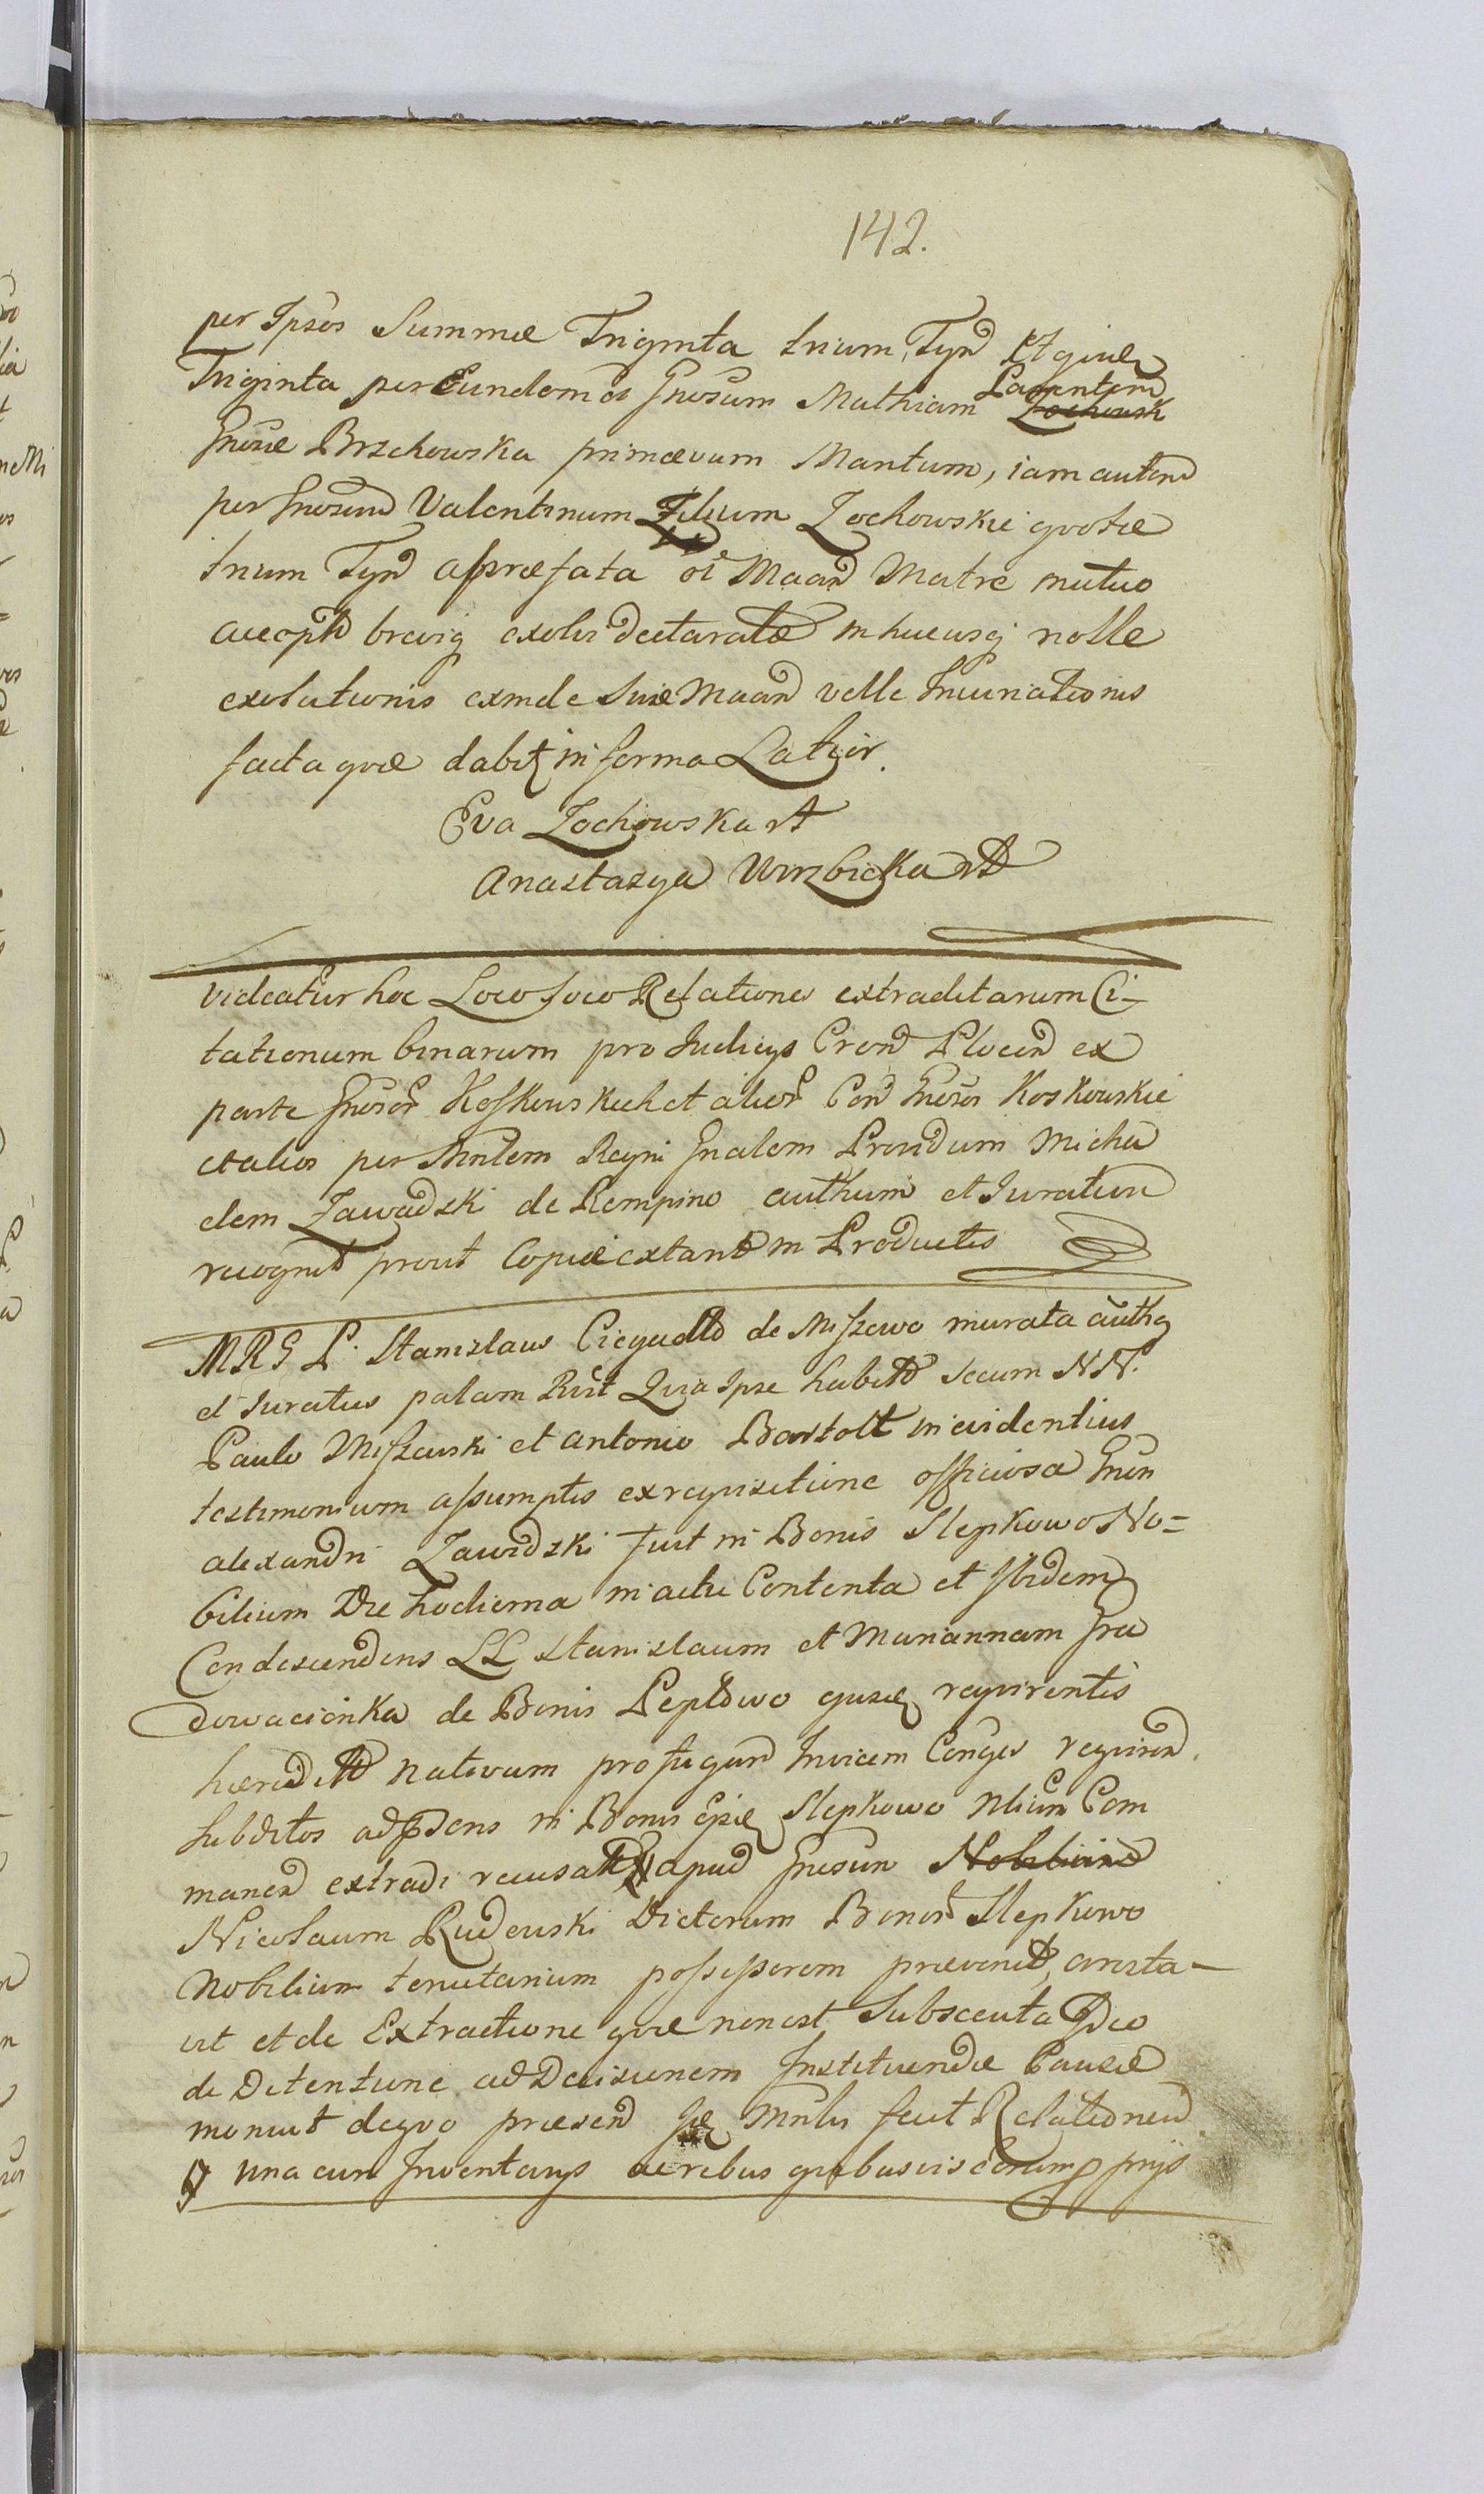 142.
per Ipsos Summæ Triginta trium Tynf Etgine
Triginta per Eundem olī Gnosum Mathiam Parentem
Gnosæ Brzchowska primævum Maritum, iam autem
per Gnosum Valentinum Filium Zochowskie quotæ
trium Tynf a præfata oī Maan Matre mutuo
accept brevig exolvi declaratæ in hucusq nolle
exolutionis exinde suæ Maan velle Incuriationis
facta quæ dabit in forma Latior.
Eva Zochowska rt
Anastazya Wirzbicka rt
Videatur hoc Loco foco Relationes extraditarum Ci-
tationum binarum pro Iudicys Cron Plocen ex
parte Gnosor Koskowskich et alior Con Gnosos Koskowskie
et alios per Mnlem Regni Gnalem Prondum Micha
elem Zawadzki de Rempino authum et Iuratum
recognit prout Copiæ extant in Productis
MRG P. Stanislaus Ciegadlo de Miszewo murata auth
et Iuratus palam Rūt Quia Ipse habit secum NN.
Paulo Miszewski et Antonio Bartolt in evidentius
testimonium assumptis ex requisitione officiosa Gnsi
Alexandri Zawidzki fuit in Bonis Slepkowo No=
bilium Die hodierna in actu Contenta et Ibidem
Condescendens LL Stanislaum et Mariannam Gra
dowacionka de Bonis Peplowo requirentis
hæredit nativum profugun Invicem Conges requiren.
subditos ad pdens in Bonis Slepkowo Nlium Com
manen extradi recusat apud Gnosum Nobilium
Nicolaum Rudowski Dictorum Bonor Slepkowo
Nobilium tenutarium possessorem prævenit, aresta-
vit et de Extractione quæ non est Subsecuta Ideo
de Detentione ad Decisionem Instituendæ Causæ
monuit de quo præsen Mnlis fecit Relationem
una cum Inventarys ac rebus quibusvis eorum prys